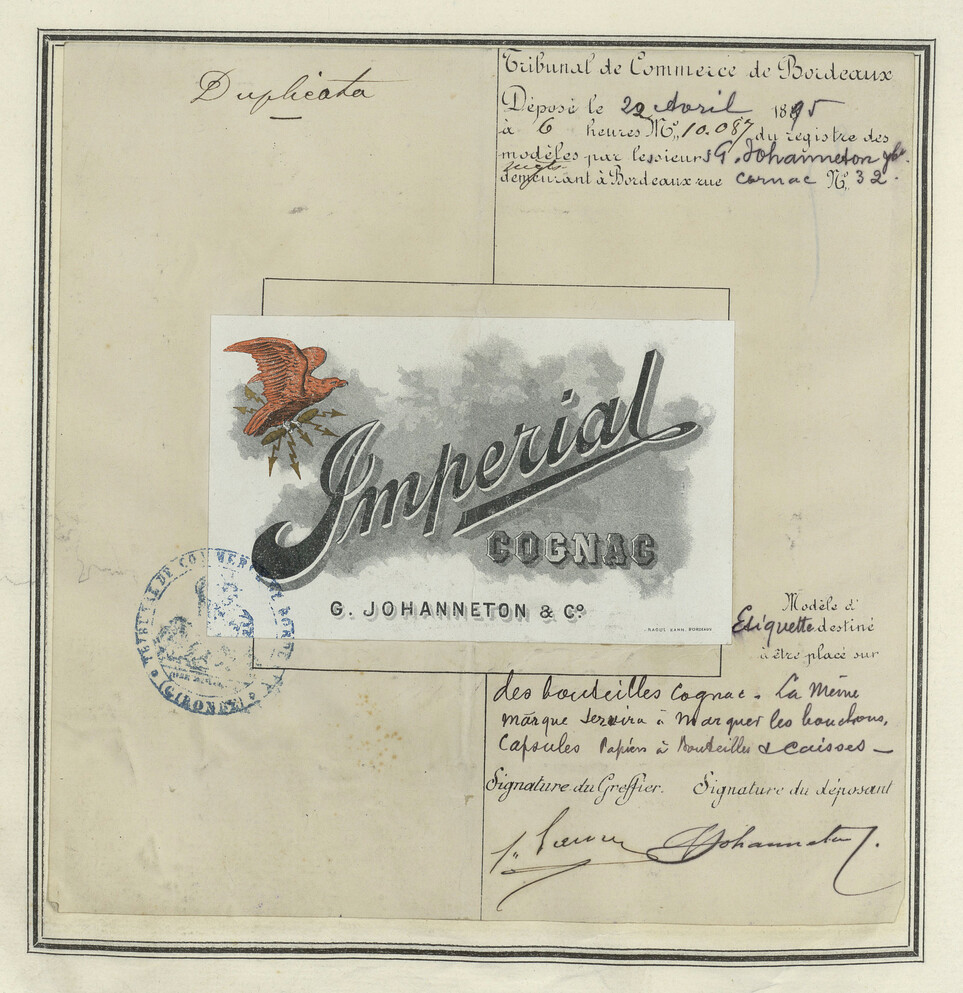 Duplicata
Tribunal de Commerce de Bordeaux
Déposé le 22 Avril 1895
à 6 heures Nº 10.087 du registre des
modèles par lessieurs G. Johanneton
demeurant à Bordeaux rue Cornac Nº 32.
Imperial
COGNAC
G. JOHANNETON & Cº.
BORDEAUX
TRIBUNAL DE COMMERCE DE BORDEAUX
(GIRONDE)
Modèle d'
Etiquette destiné
à être placé sur
des bouteilles Cognac. La Même
marque servira à marquer les bouchons,
Capsules Papiers à Bouteilles & caisses
Signature du Greffier. Signature du déposant
Johanneton